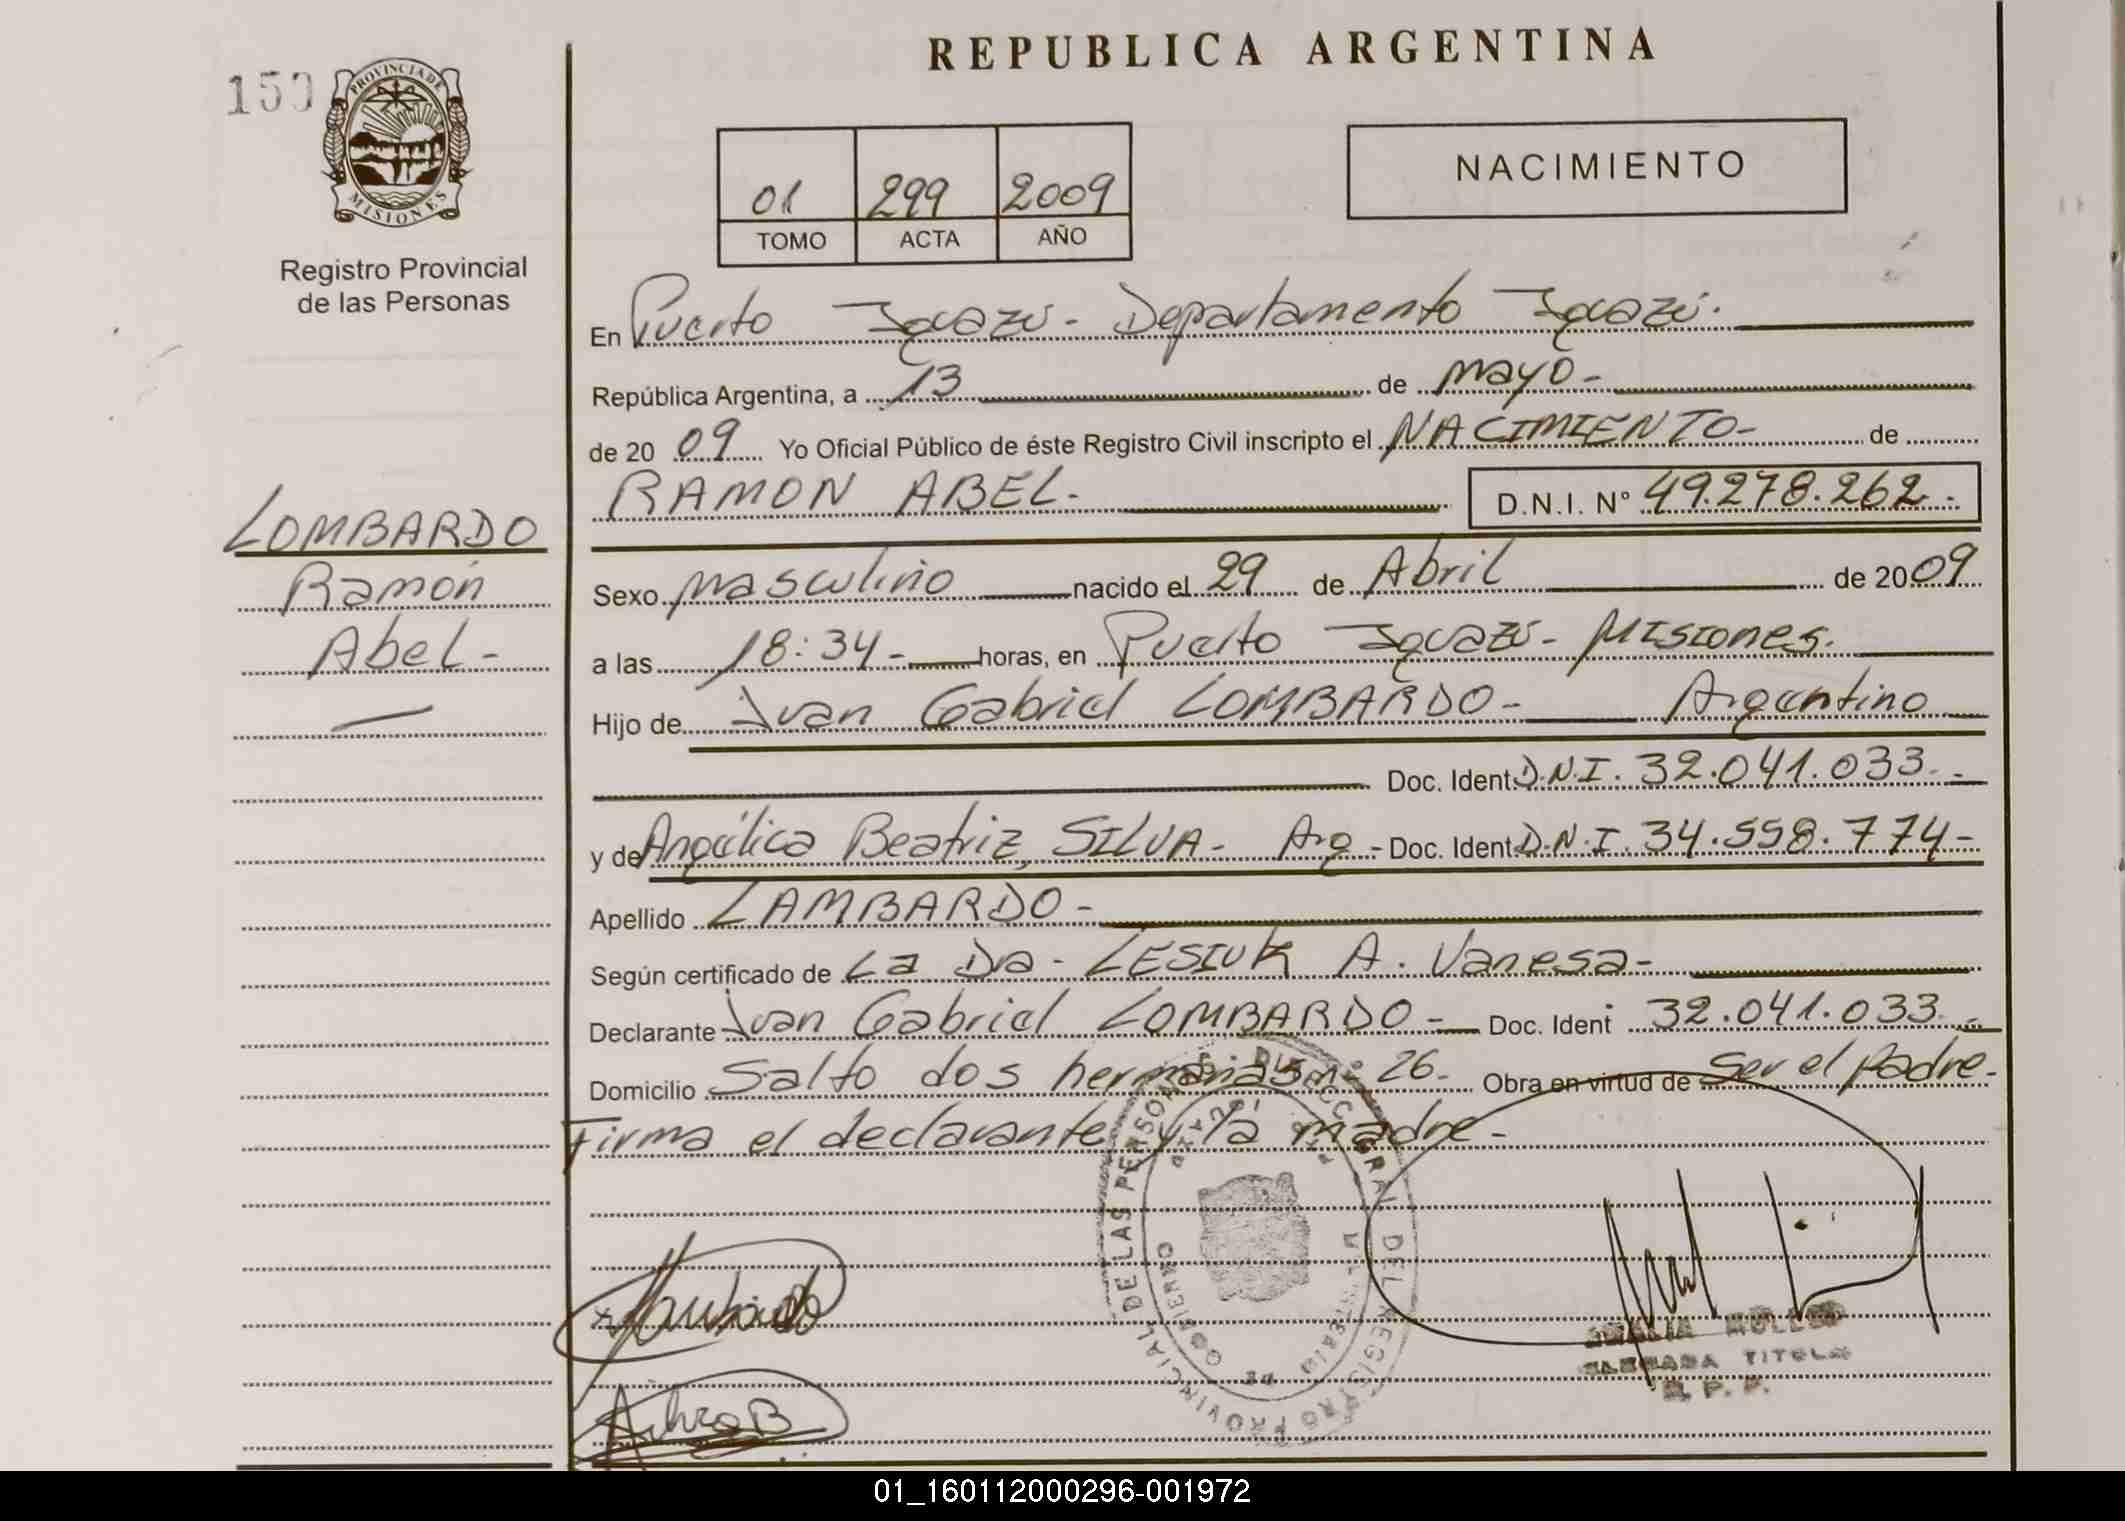 REPUBLICA ARGENTINA
150
PROVINCIA DE
MISIONES
Registro Provincial
de las Personas
01 299 2009
TOMO ACTA AÑO
NACIMIENTO
En Puerto Iguazú - Departamento Iguazú.
República Argentina, a 13 de mayo -
de 20 09 Yo Oficial Público de éste Registro Civil inscripto el NACIMIENTO - de
RAMON ABEL - D.N.I. Nº 49.278.262 -
LOMBARDO
Ramón
Abel -
Sexo masculino nacido el 29 de Abril de 2009
a las 18:34 - horas, en Puerto Iguazú - Misiones.
Hijo de Juan Gabriel LOMBARDO - Argentino
Doc. Ident. D.N.I. 32.041.033 -
y de Angélica Beatriz, SILVA - Arg - Doc. Ident. D.N.I. 34.558.774 -
Apellido LAMBARDO -
Según certificado de La Dra - LESIUK A. Vanesa -
Declarante Juan Gabriel LOMBARDO - Doc. Ident 32.041.033 -
Domicilio Salto dos hermanas nº 26 - Obra en virtud de Ser el padre -
Firma el declarante y la madre -
DIRECC. GRAL DEL REGISTRO PROVINCIAL DE LAS PERSONAS
MINISTERIO DE GOBIERNO
AMALIA MULLER
DELEGADA TITULAR
R. P. P.
01_160112000296-001972